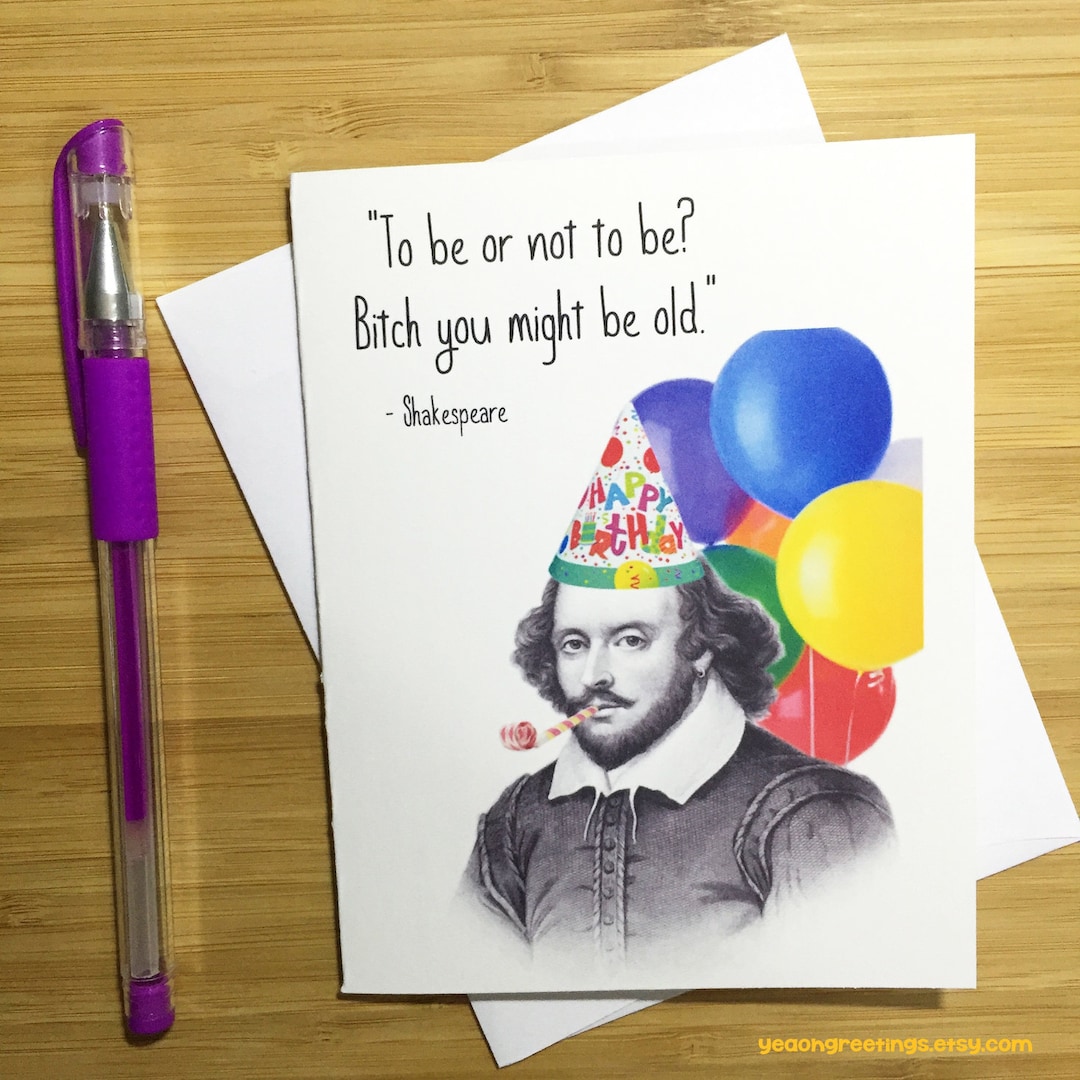 "To be or not to be?
Bitch you might be old."
- Shakespeare
HAPPY
BiRtHday
yeaongreetings.etsy.com